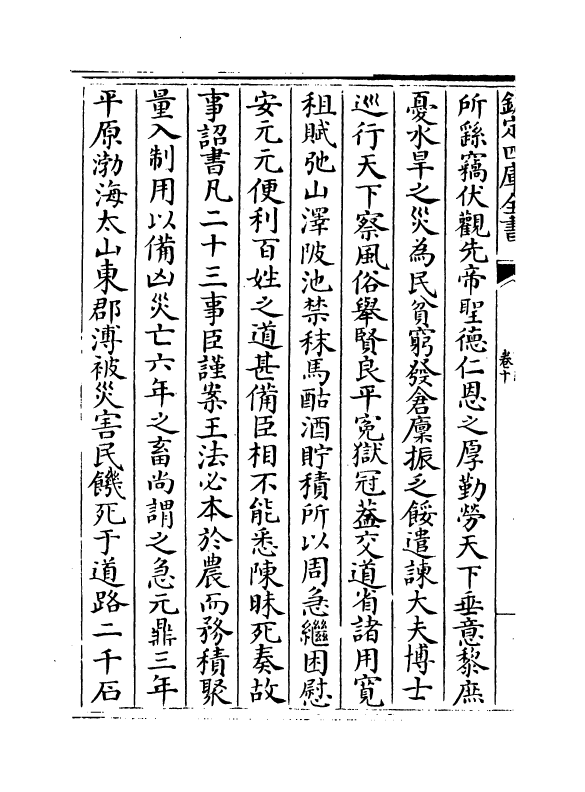 欽定四庫全書
卷十
所繇竊伏觀先帝聖德仁恩之厚勤勞天下垂意黎庶
憂水旱之災為民貧窮發倉廩振乏餧遣諫大夫博士
巡行天下察風俗舉賢良平寃獄冠葢交道省諸用寛
租賦弛山澤陂池禁秣馬酤酒貯積所以周急繼困慰
安元元便利百姓之道甚備臣相不能悉陳昧死奏故
事詔書凡二十三事臣謹案王法必本於農而務積聚
量入制用以備凶災亡六年之畜尚謂之急元鼎三年
平原渤海太山東郡溥被災害民饑死于道路二千石